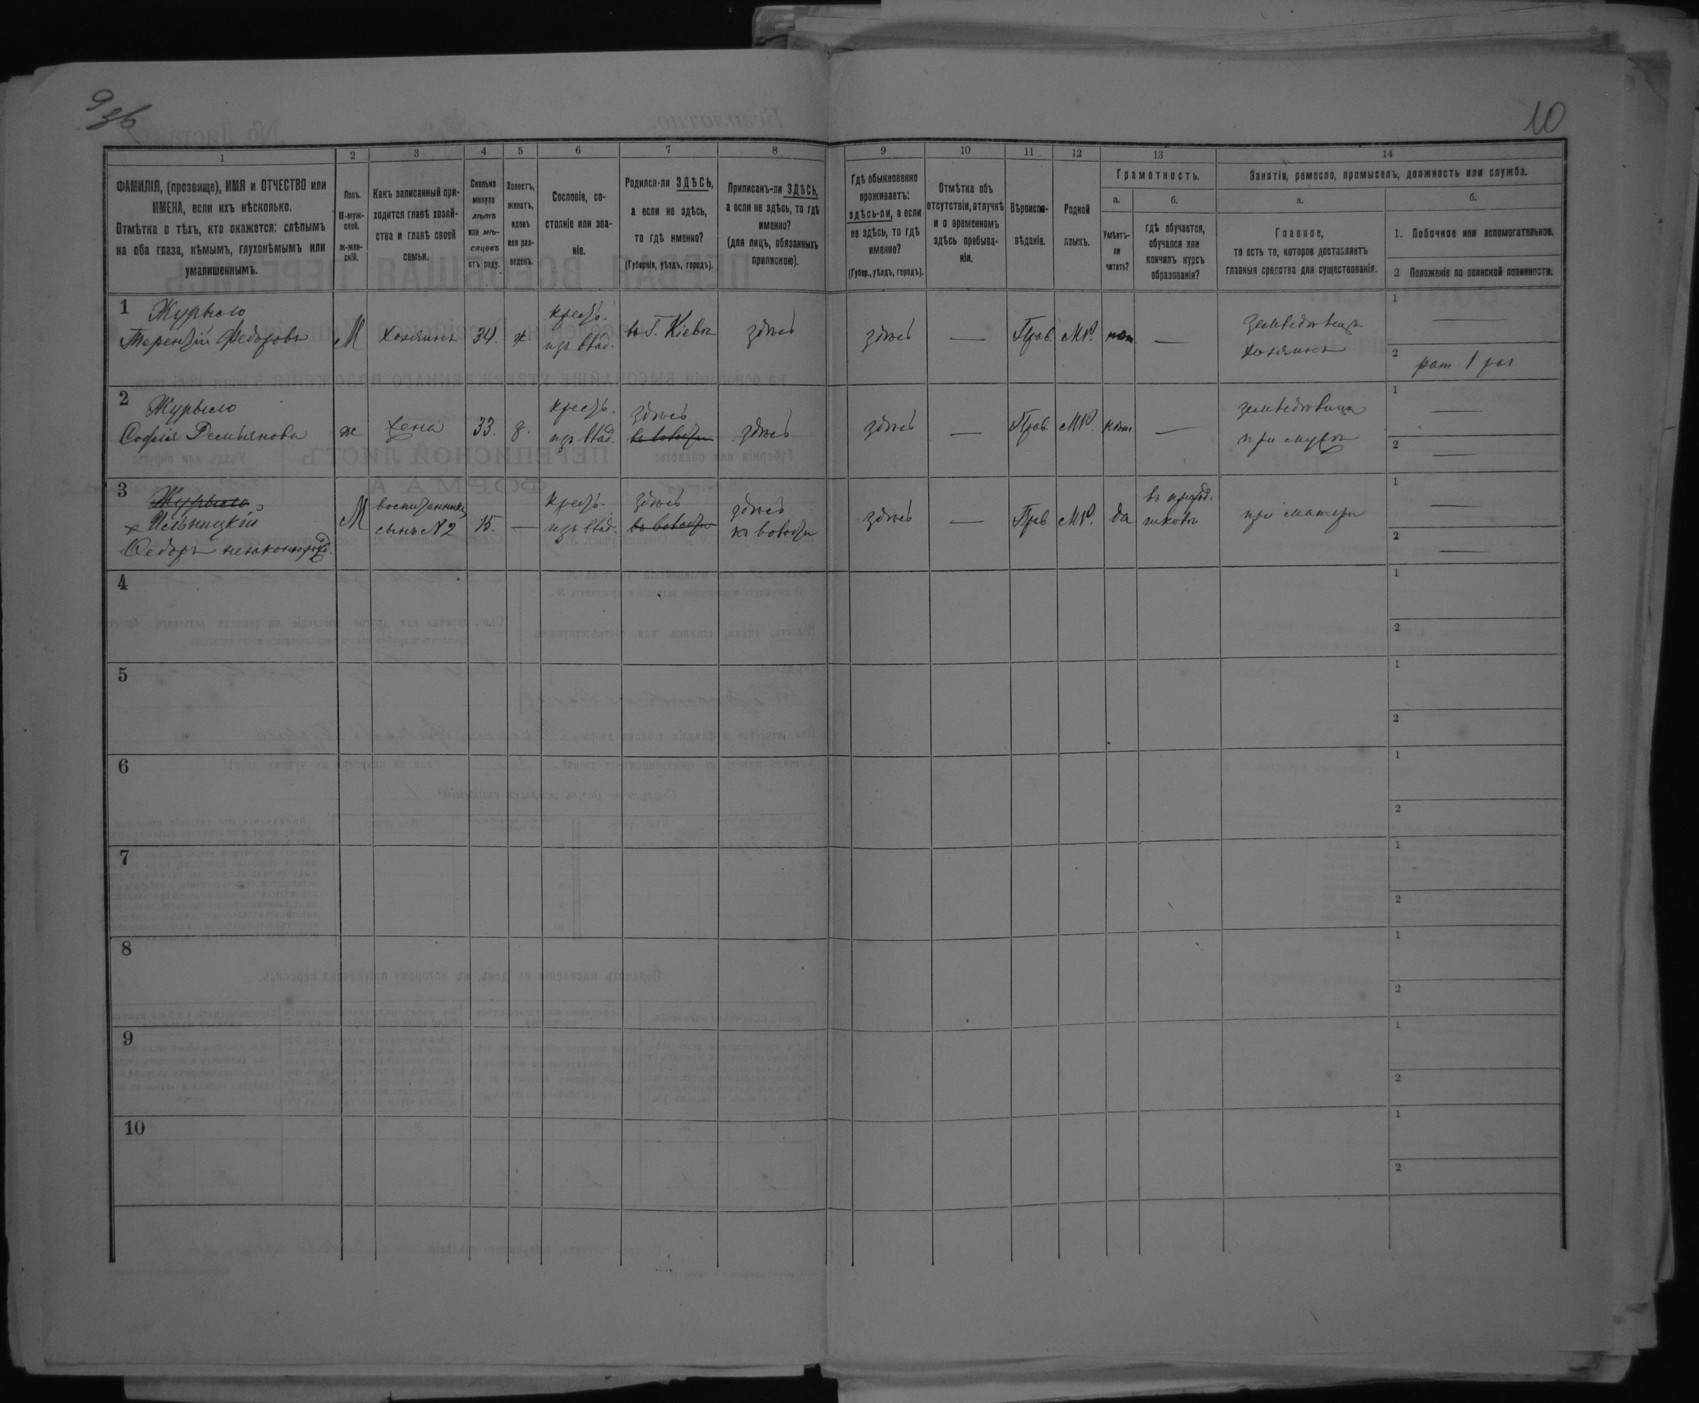 9 об
10
1
2
3
4
5
6
7
8
9
10
11
12
13
14
ФАМИЛІЯ, (прозвище), ИМЯ и ОТЧЕСТВО или
ИМЕНА, если ихъ нѣсколько.
Отмѣтка о тѣхъ, кто окажется: слѣпымъ
на оба глаза, нѣмымъ, глухонѣмымъ или
умалишеннымъ.
Полъ.
М-муж-
ской.
ж-жен-
скій.
Какъ записанный при-
ходится главѣ хозяй-
ства и главѣ своей
семьи.
Сколько
минуло
лѣтъ
или мѣ-
сяцевъ
отъ роду.
Холостъ,
женатъ,
вдовъ
или раз-
веденъ.
Сословіе, со-
стояніе или зва-
ніе.
Родился-ли ЗДѢСЬ,
а если не здѣсь,
то гдѣ именно?
(Губернія, уѣздъ, городъ).
Приписанъ-ли ЗДѢСЬ,
а если не здѣсь, то гдѣ
именно?
(для лицъ, обязанныхъ
припискою).
Гдѣ обыкновенно
проживаетъ:
здѣсь-ли, а если
не здѣсь, то гдѣ
именно?
(Губер., уѣздъ, городъ).
Отмѣтка объ
отсутствіи, отлучкѣ
и о временномъ
здѣсь пребыва-
ніи.
Вѣроиспо-
вѣданіе.
Родной
языкъ.
Грамотность.
а.
Умѣетъ-
ли
читать?
б.
гдѣ обучается,
обучался или
кончилъ курсъ
образованія?
Занятія, ремесло, промыселъ, должность или служба.
а.
Главное,
то есть то, которое доставляетъ
главныя средства для существованія.
б.
1. Побочное или вспомогательное.
2 Положеніе по воинской повинности.
1
Журыло
Терентій Федоровъ
М
Хозяинъ
34.
ж.
крест.
изъ влад.
въ Г. Кіевѣ
здѣсь
здѣсь
—
Прав.
МР.
нѣт
—
земледѣлецъ
хозяинъ
1
—
2
рат. 1 раз
2
Журыло
Софія Демьянова
ж
жена
33.
з.
крест.
изъ влад.
здѣсь
здѣсь
здѣсь
—
Прав.
МР.
нѣт
—
земледѣлица
при мужѣ
1
—
2
—
3
Журыло
Федоръ незаконнорожд.
М
воспитанникъ
сынъ N2
15.
—
крест.
изъ влад.
здѣсь
здѣсь
здѣсь
—
Прав
МР.
да
въ народ.
школѣ
при матери
1
—
2
—
4
1
2
5
1
2
6
1
2
7
1
2
8
1
2
9
1
2
10
1
2